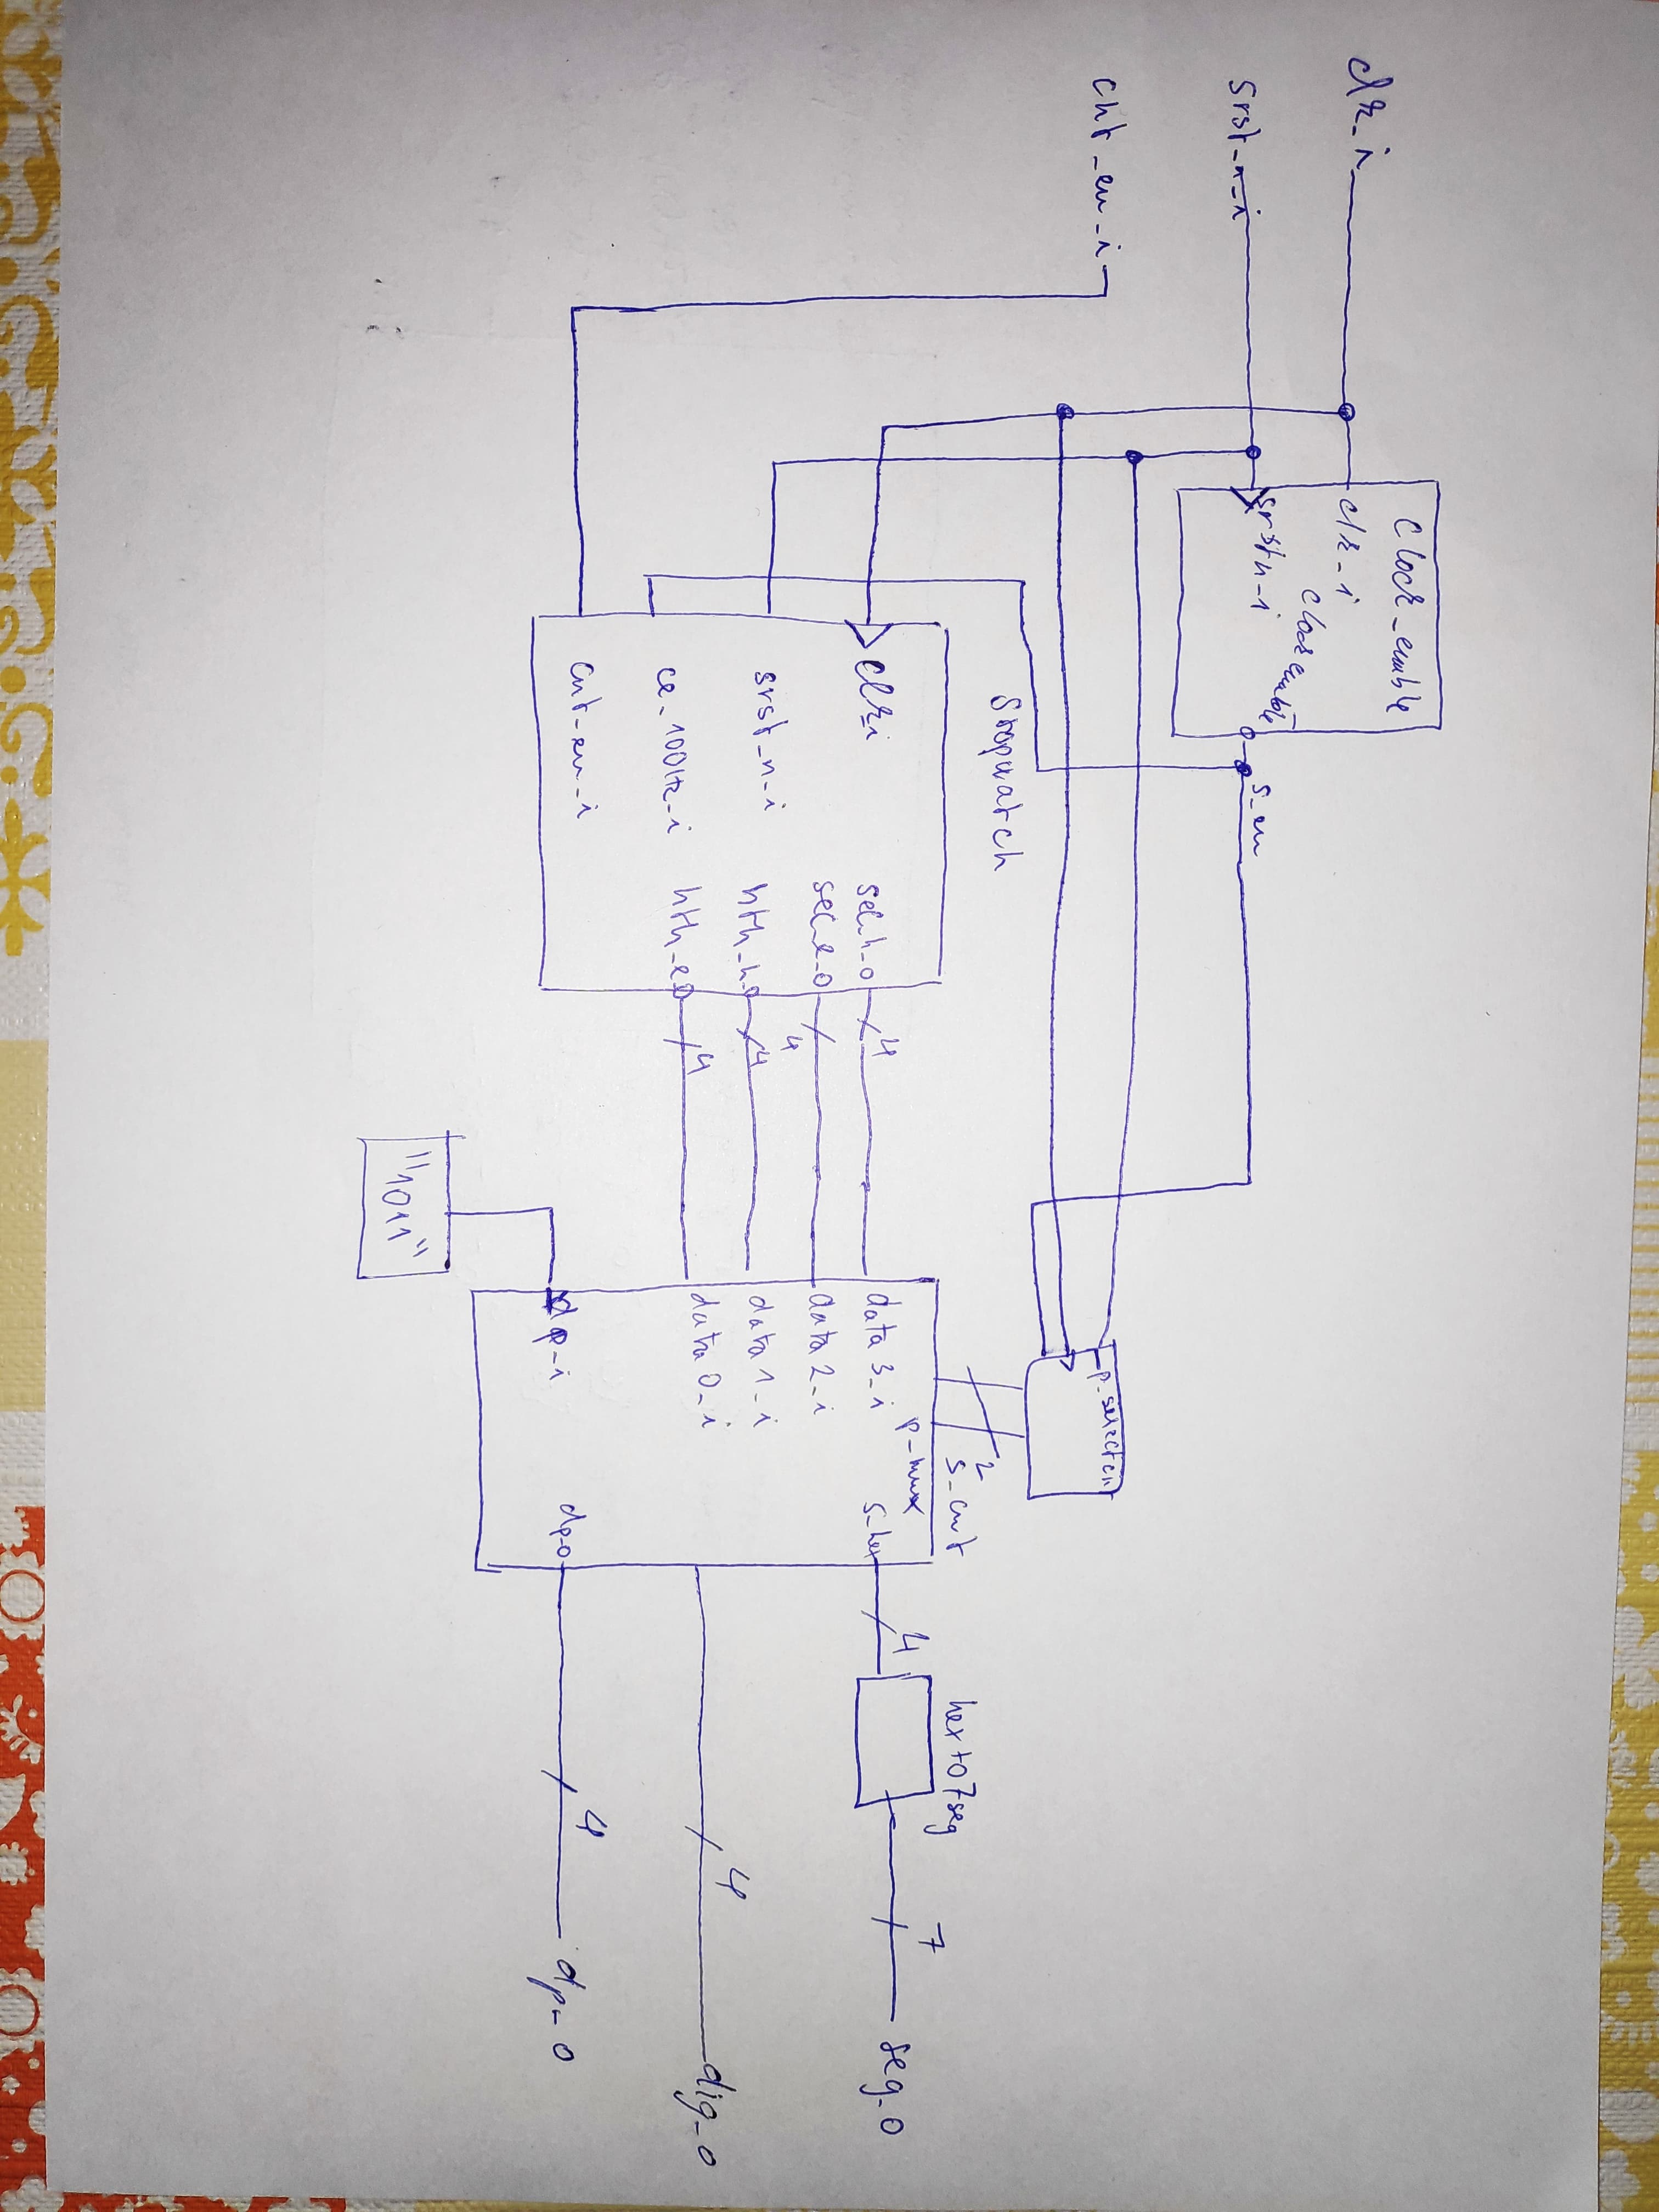 clk_i
srst_n_i
cnt_en_i
Clock_enable
clk_i
clock enable
srstn_i
s_en
p_select cnt
2
s_cnt
Stopwatch
clk_i
srst_n_i
ce_100Hz_i
cnt_en_i
sec_h_o
sec_l_o
hth_h_o
hth_l_o
4
4
4
4
p_mux
data 3_i
data 2_i
data 1_i
data 0_i
dp_i
s_hex
dp_o
"1011"
4
hex to 7seg
7
seg_o
4
dig_o
4
dp_o